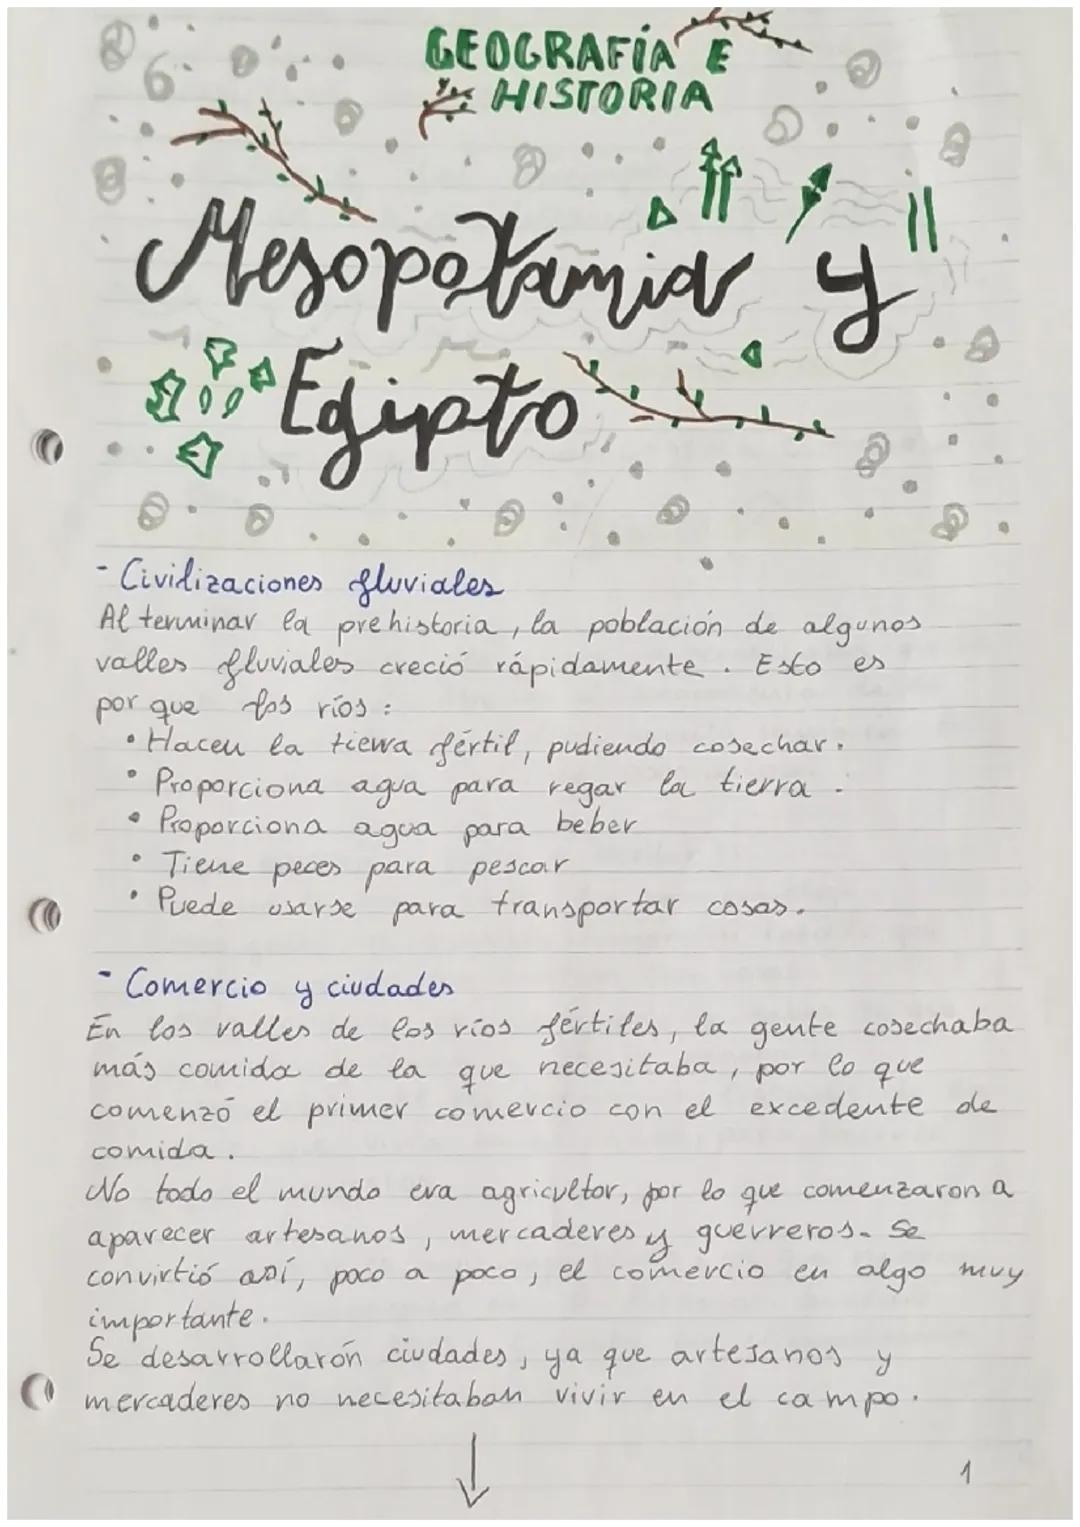 GEOGRAFÍA E
HISTORIA
Mesopotamia y
Egipto
- Civilizaciones fluviales
Al terminar la prehistoria, la población de algunos
valles fluviales creció rápidamente. Esto es
por que los ríos:
• Hacen la tierra fértil, pudiendo cosechar.
• Proporciona agua para regar la tierra.
• Proporciona agua para beber
• Tiene peces para pescar
• Puede usarse para transportar cosas.
- Comercio y ciudades
En los valles de los ríos fértiles, la gente cosechaba
más comida de la que necesitaba, por lo que
comenzó el primer comercio con el excedente de
comida.
No todo el mundo era agricultor, por lo que comenzaron a
aparecer artesanos, mercaderes y guerreros. Se
convirtió así, poco a poco, el comercio en algo muy
importante.
Se desarrollarón ciudades, ya que artesanos y
mercaderes no necesitaban vivir en el campo.
↓
1